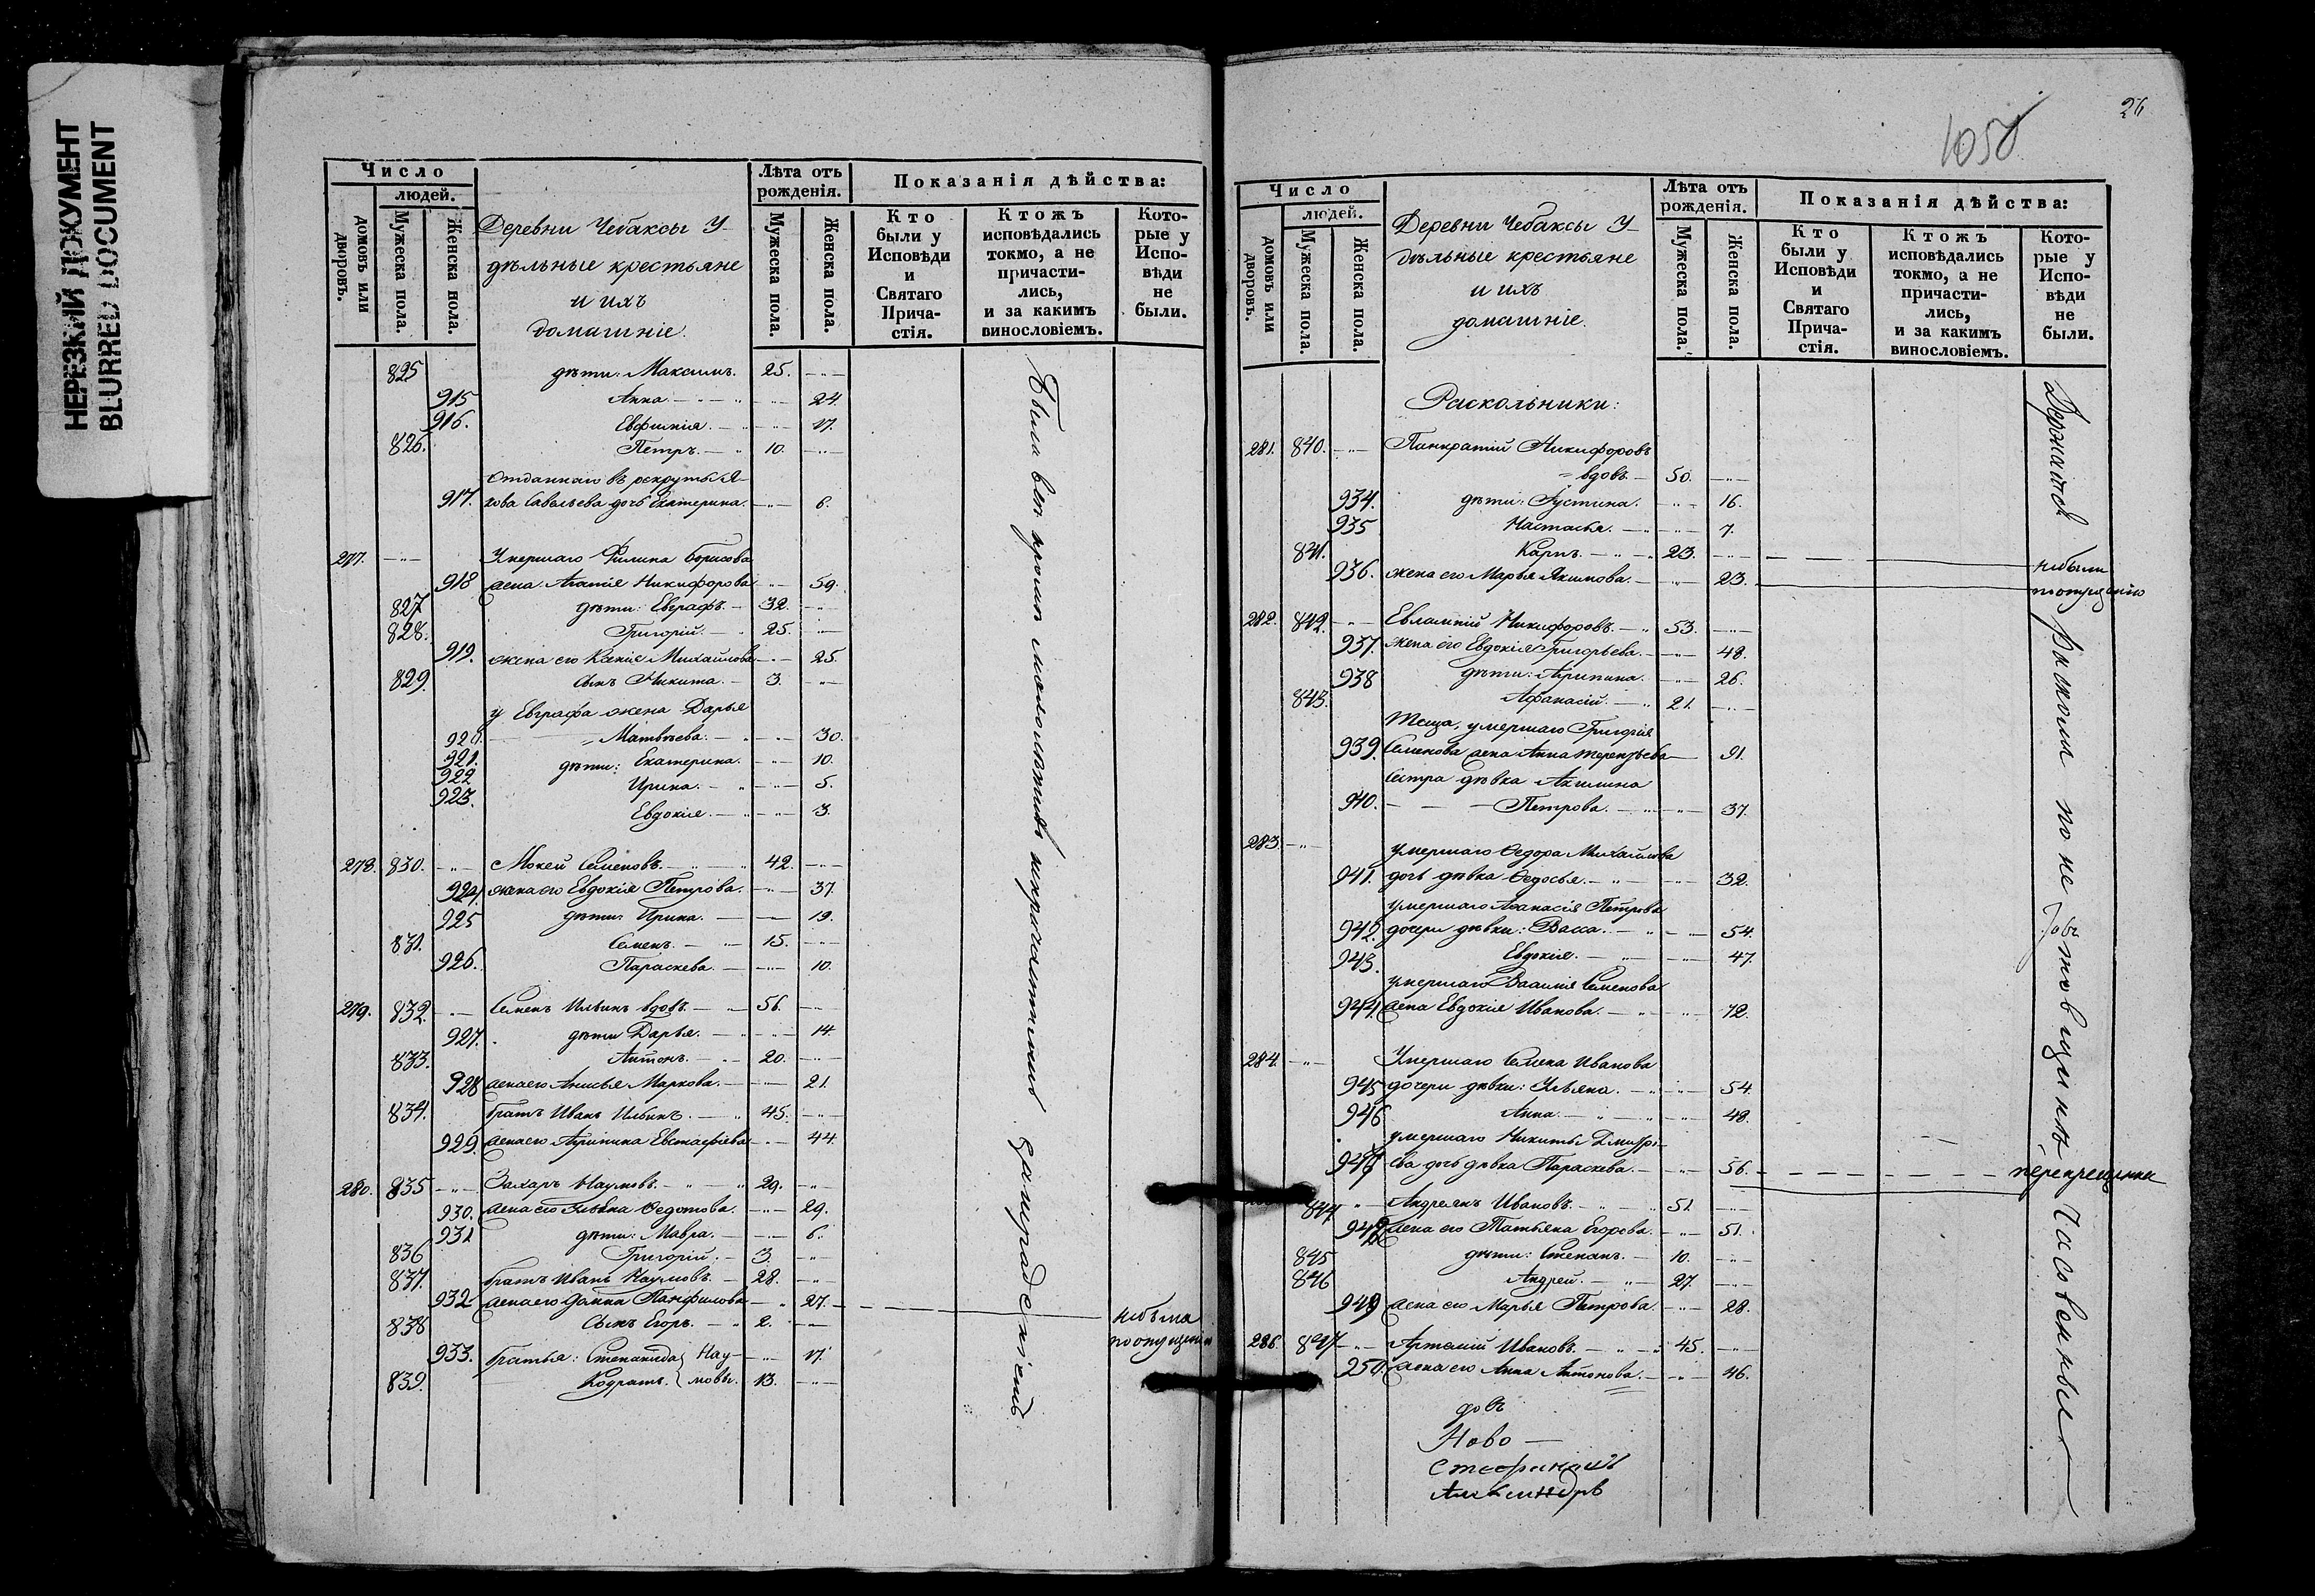 НЕРЕЗКИЙ ДОКУМЕНТ
BLURRED DOCUMENT
Число
людей.
домовъ или дворовъ.
Мужеска пола.
Женска пола.
Деревни Чебаксы У-
дѣльные крестьяне
и ихъ
домашніе.
Лѣта отъ рожденія.
Мужеска пола.
Женска пола.
Показанія дѣйства:
Кто были у Исповѣди и Святаго Прича- стія.
Ктожъ исповѣдались токмо, а не причасти- лись, и за какимъ винословіемъ.
Кото- рые у Испо- вѣди не были.
825 дѣти: Максимъ. 25.
915 Анна. 24.
916. Евфимія. 17.
826. Петръ. 10.
Отданнаго въ рекруты Я-
917. кова Савельева дочь Екатерина. 6.
277. Умершаго Филипа Борисова
918 жена Агапія Никифорова 59.
827 дѣти: Евграфъ. 32.
828. Григорій. 25.
919. жена его Ксенія Михайлова 25.
829. сынъ Никита. 3.
у Евграфа жена Дарья
920. Матвѣева. 30.
921. дѣти: Екатерина. 10.
922 Ирина. 5.
923. Евдокія. 3.
278. 830. Мокей Семеновъ. 42.
924. жена его Евдокія Петрова. 37.
925 дѣти: Ирина. 19.
831. Семенъ. 15.
926. Параскева. 10.
279. 832. Семенъ Ильинъ вдовъ. 56.
927. дѣти Дарья. 14
833. Антонъ. 20.
928 жена его Анисья Маркова. 21.
834. братъ Иванъ Ильинъ. 45.
929. жена его Агрипина Евстафіева 44.
280. 835 Захаръ Наумовъ. 29.
930. жена его Ульяна Федотова. 29.
931 дѣти: Мавра. 6.
836 Григорій. 3.
837. братъ Иванъ Наумовъ. 28.
932 жена его Домна Панфилова 27.
838 сынъ Егоръ. 2.
933. братья: Степанида Нау- 17.
839. Кодратъ. мовы. 13.
Были всѣ кромѣ малолѣтнихъ
небыла
по опущенію
26
1050
Число
людей.
домовъ или дворовъ.
Мужеска пола.
Женска пола.
Деревни Чебаксы У-
дѣльные крестьяне
и ихъ
домашніе.
Лѣта отъ рожденія.
Мужеска пола.
Женска пола.
Показанія дѣйства:
Кто были у Исповѣди и Святаго Прича- стія.
Ктожъ исповѣдались токмо, а не причасти- лись, и за какимъ винословіемъ.
Кото- рые у Испо- вѣди не были.
Раскольники:
281. 840. Панкратій Никифоровъ
вдовъ. 50.
934. дѣти: Іустина. 16.
935 Настасья. 7.
841. Карпъ. 23.
936. жена его Марья Якимова. 23.
небыли
по опущенію
282. 842. Евлампій Никифоровъ. 53.
937. жена его Евдокія Григорьева. 48.
938 дѣти: Агрипина. 26.
843. Афанасій. 21.
Теща, умершаго Григорія
939. Семенова жена Анна Терентьева 91.
Сестра дѣвка Акилина
940. Петрова. 37.
283. умершаго Федора Михайлова
941. дочь дѣвка Федосья. 32.
умершаго Афанасія Петрова
942. дочери дѣвки: Васса. 54.
943. Евдокія. 47.
умершаго Василія Семенова
944. жена Евдокія Иванова. 72.
284. Умершаго Семена Иванова
945 дочери дѣвки: Ульяна. 54.
946 Анна. 48.
умершаго Никиты Дмитрі-
947 ева дочь дѣвка Параскева. 56.
844 Андреянъ Ивановъ. 51.
948 жена его Татьяна Егорова. 51.
845 дѣти: Степанъ. 10.
846 Андрей. 27.
949 жена его Марья Петрова. 28.
286. 847 Артемій Ивановъ. 45.
950. жена его Анна Антонова. 46.
Держатся раскола по не
Часовенныя
Ново-